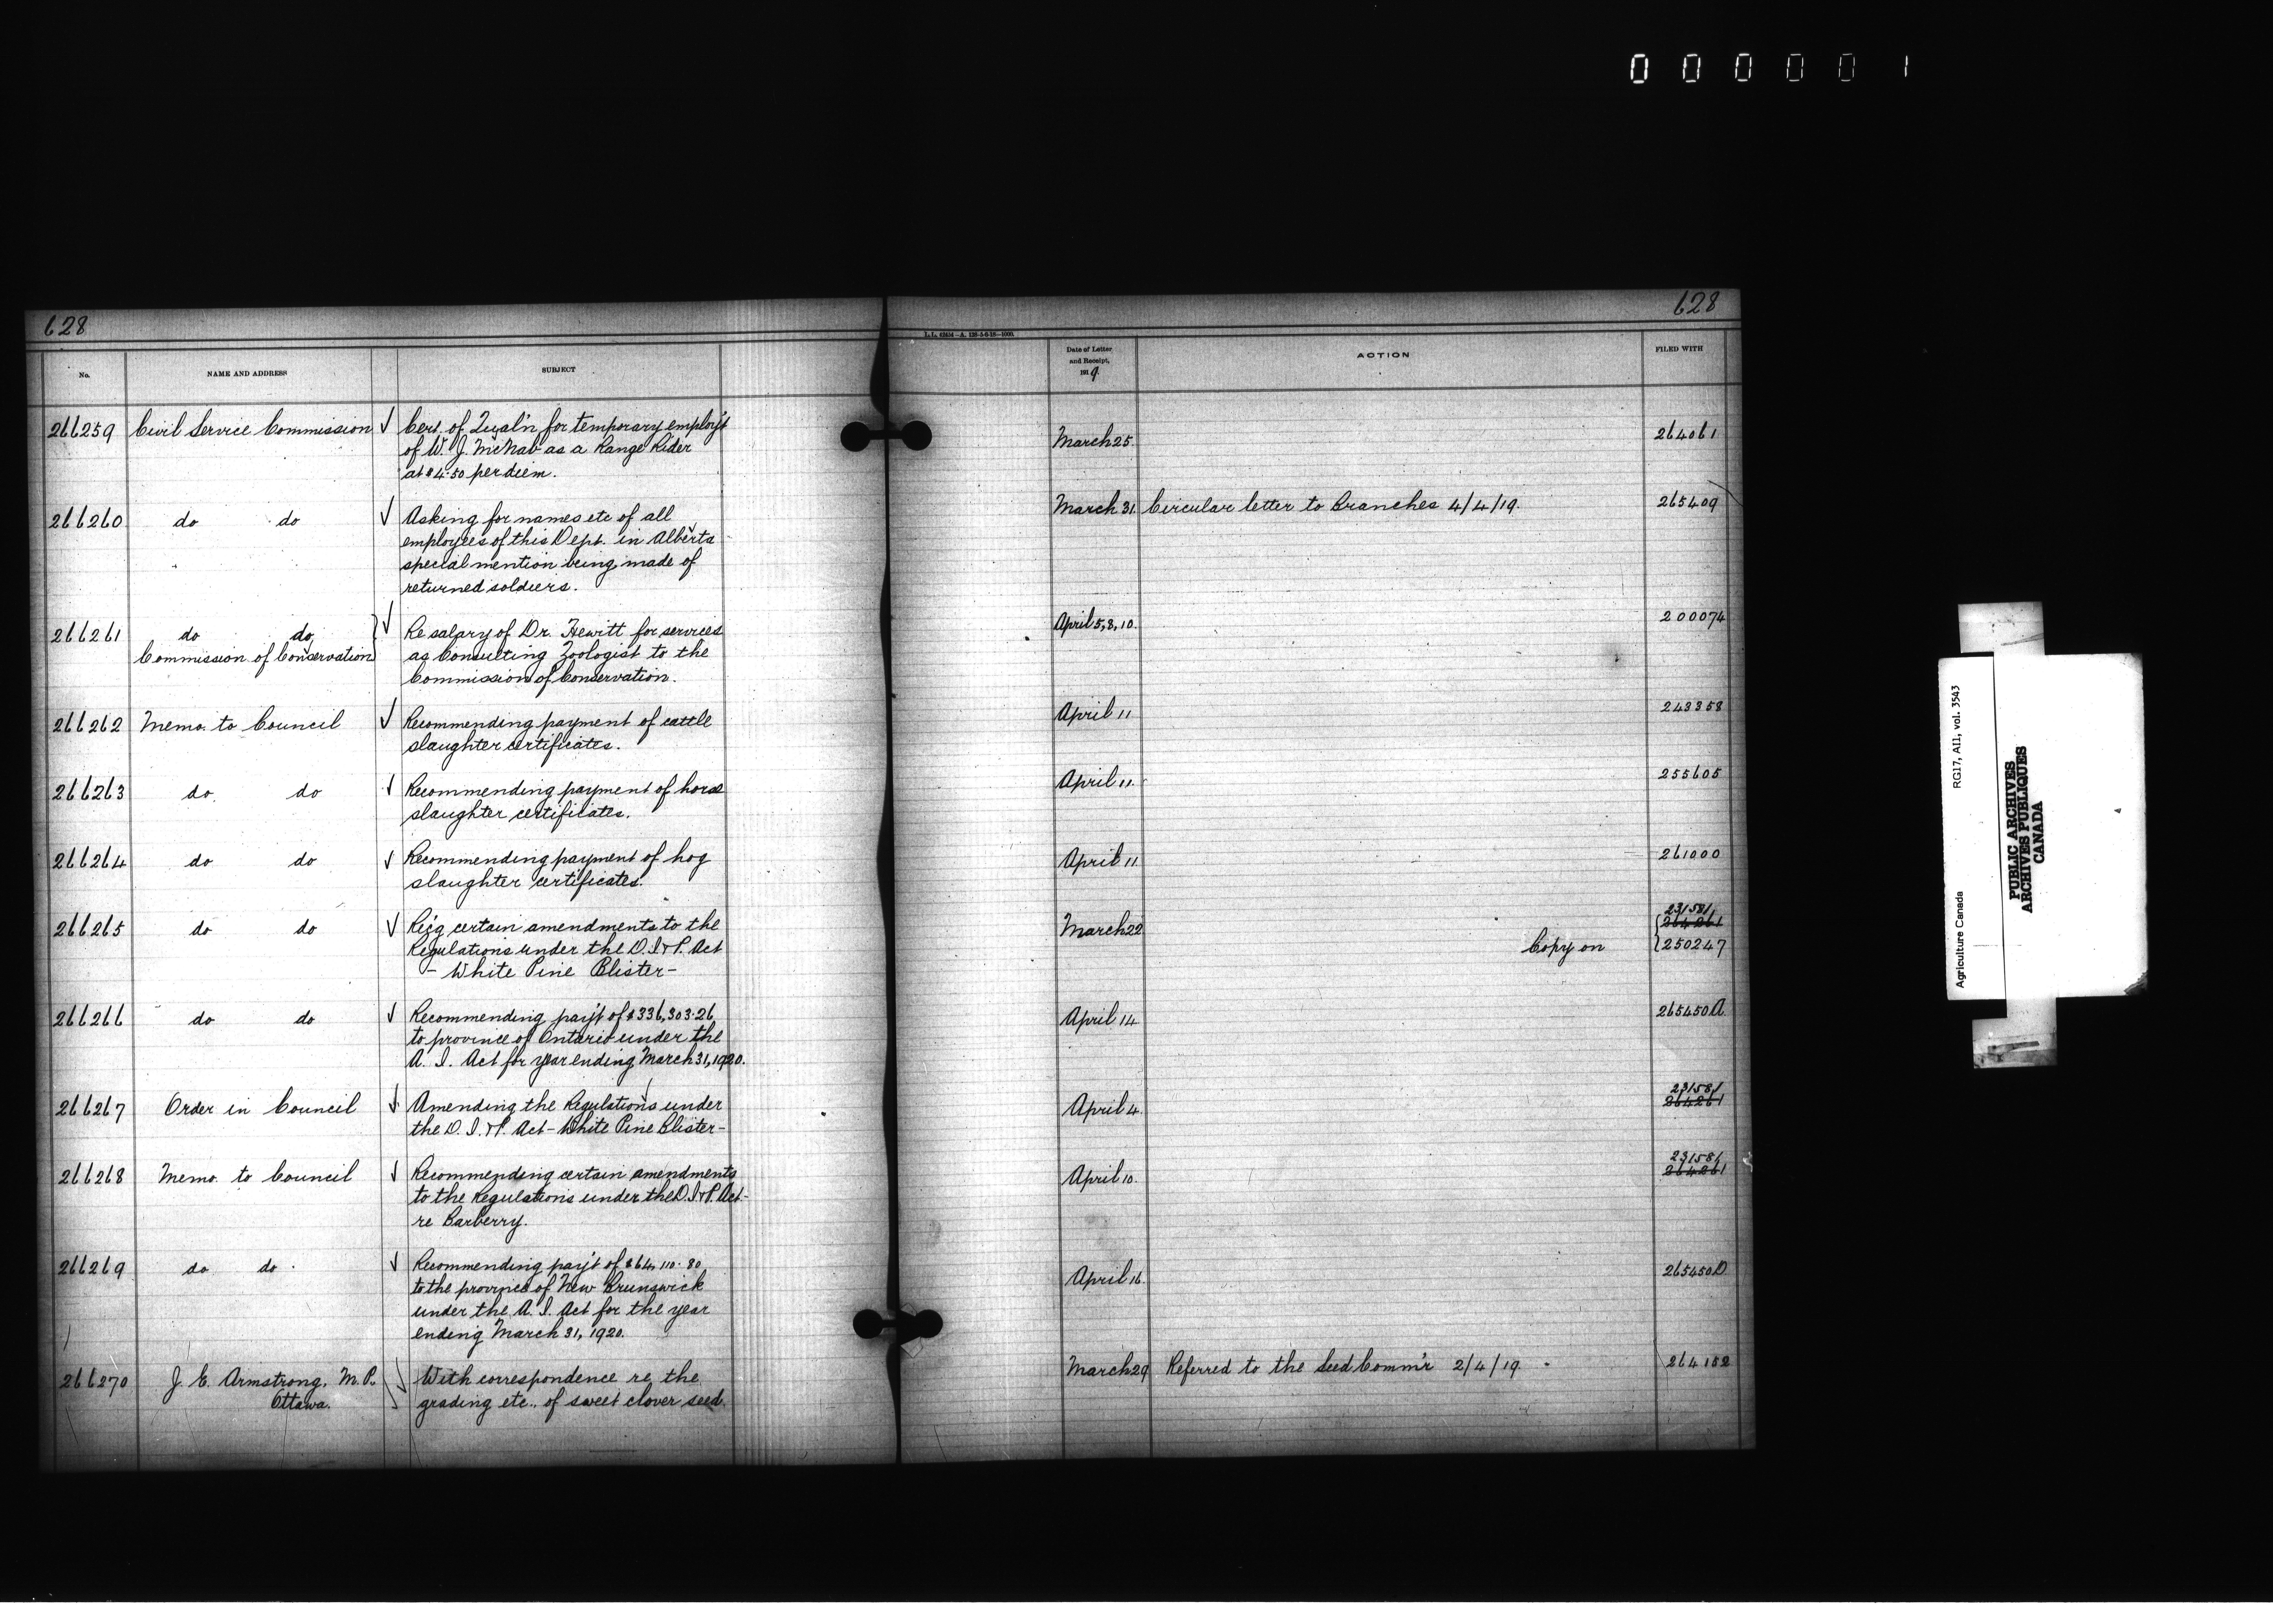 000001
628
628
L.L. 42934—A. 126-5-6-18—1000.
No.
NAME AND ADDRESS
SUBJECT
Date of Letter
and Receipt,
1919
ACTION
FILED WITH
266259 Civil Service Commission √ Cert. of Qual'n for temporary employ't March 25. 264061
of W. J. McNab as a Range Rider
at $4.50 per diem.
266260 do do √ Asking for names etc of all March 31. Circular letter to Branches 4/4/19. 265409
employees of this Dept. in Alberta
special mention being made of
returned soldiers.
266261 do do } √ Re salary of Dr. Hewitt for services April 5, 8, 10. 200074
Commission of Conservation as Consulting Zoologist to the
Commission of Conservation.
266262 Memo. to Council √ Recommending payment of cattle April 11 243358
slaughter certificates.
266263 do do √ Recommending payment of horse April 11. 255605
slaughter certificates.
266264 do do √ Recommending payment of hog April 11 261000
slaughter certificates.
231581
266265 do do √ Re'c'g certain amendments to the March 22 264261
Regulations under the D. I. & P. Act Copy on 250247
- White Pine Blister -
266266 do do √ Recommending pay't of $336,303.26 April 14 265450A
to province of Ontario under the
A. I. Act for year ending March 31, 1920.
231581
266267 Order in Council √ Amending the Regulations under April 4. 264261
the D. I. & P. Act - White Pine Blister -
231581
266268 Memo. to Council √ Recommending certain amendments April 10. 264261
to the Regulations under the D. I. & P. Act -
re Barberry.
266269 do do √ Recommending pay't of $64,110.80 April 16. 265450D
to the province of New Brunswick
under the A. I. Act for the year
ending March 31, 1920.
266270 J. E. Armstrong, M.P. √ With correspondence re the March 29 Referred to the Seed Comm'r 2/4/19 264152
Ottawa. grading etc., of sweet clover seed.
Agriculture Canada RG17, AII, vol. 3543
PUBLIC ARCHIVES
ARCHIVES PUBLIQUES
CANADA